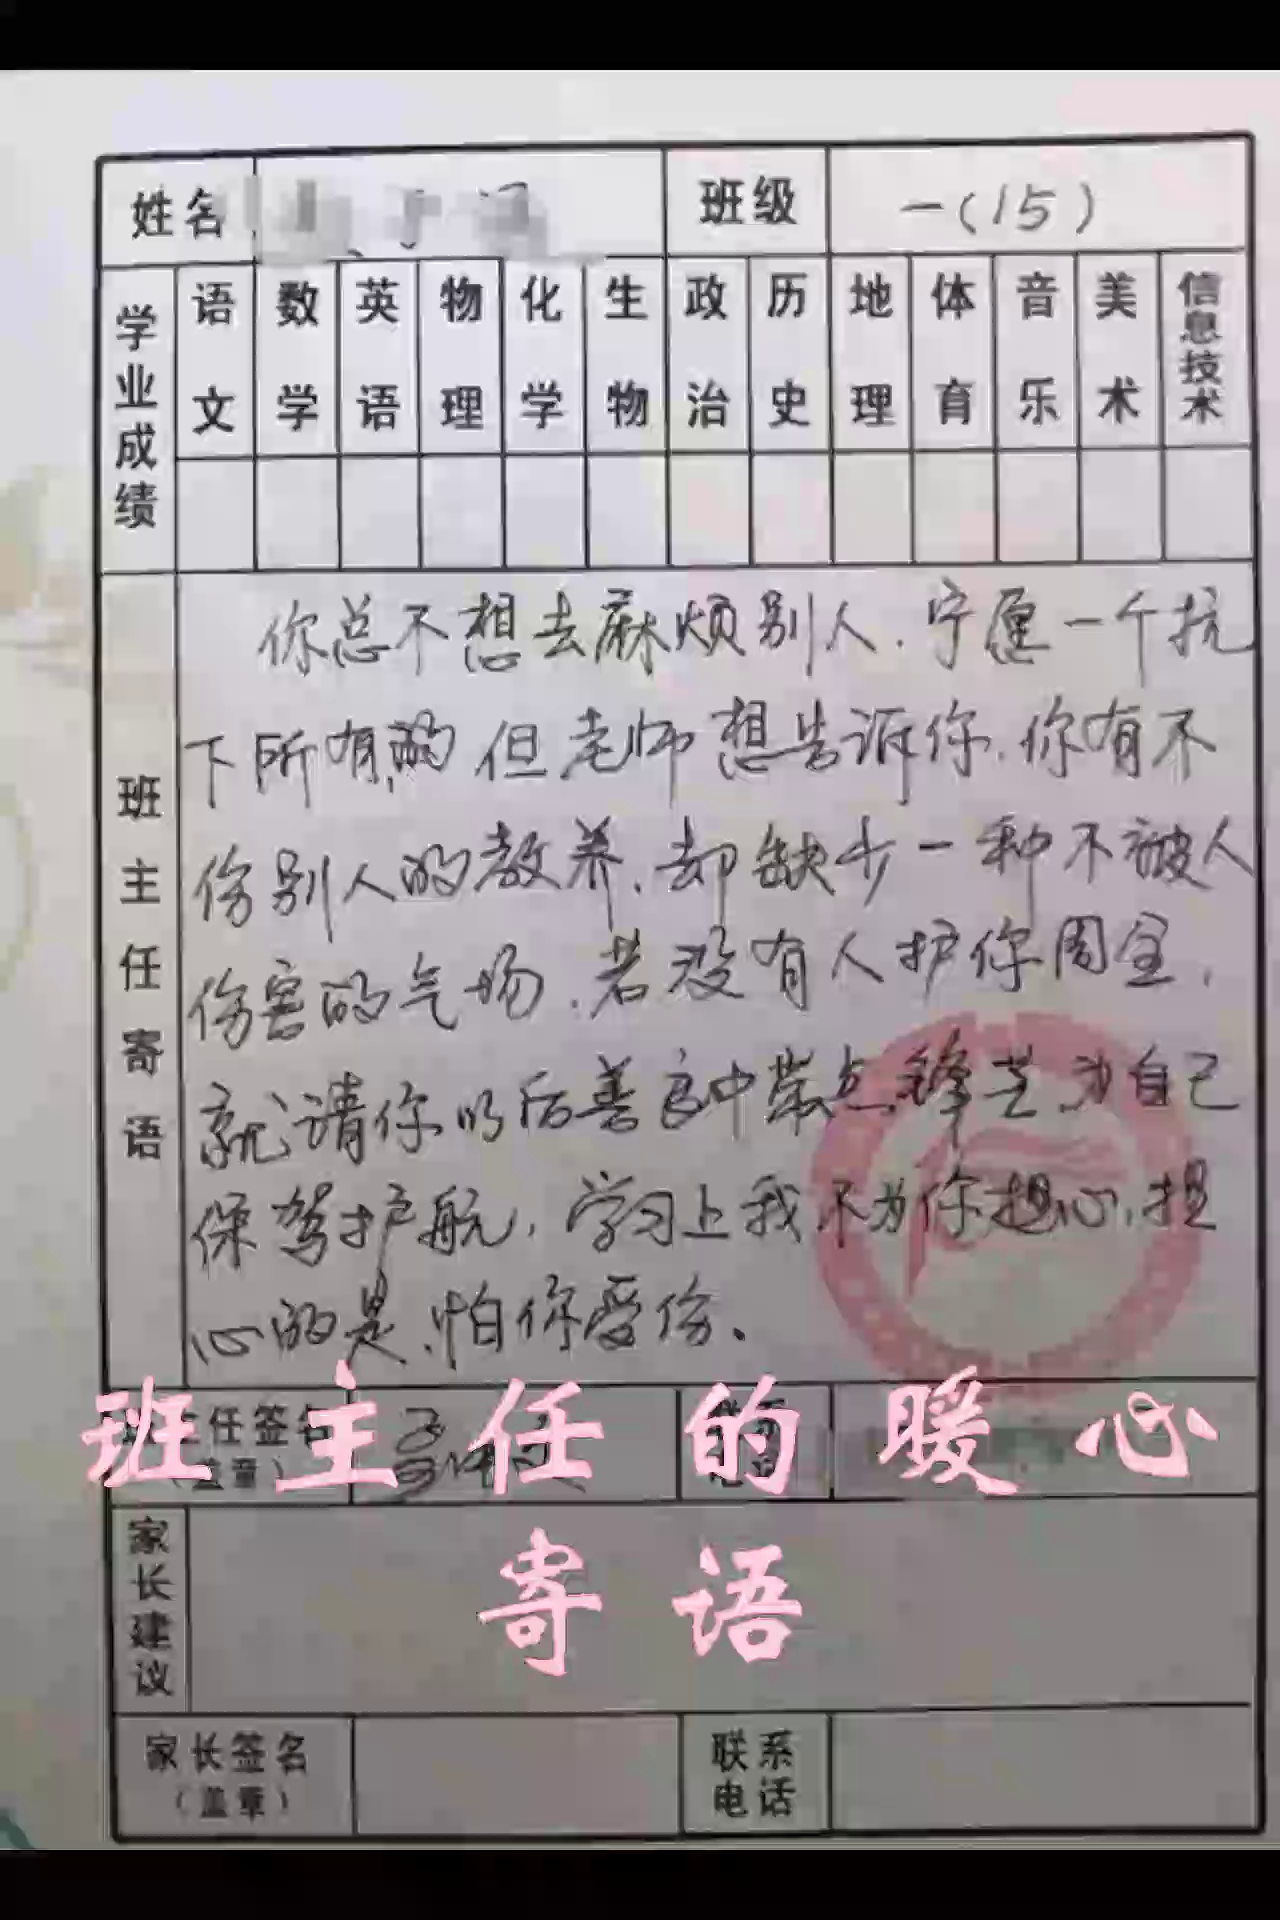 姓名 班级 一(15)
学业成绩 语文 数学 英语 物理 化学 生物 政治 历史 地理 体育 音乐 美术 信息技术
班主任寄语
你总不想去麻烦别人.宁愿一个抗
下所有的 但老师想告诉你.你有不
伤别人的教养.却缺少一种不被人
伤害的气场.若没有人护你周全,
就请你以后善良中带点锋芒 为自己
保驾护航,学习上我不为你担心,担
心的是.怕你受伤.
班主任的暖心
主任签名
(盖章)
寄语
家长建议
家长签名 联系
(盖章) 电话